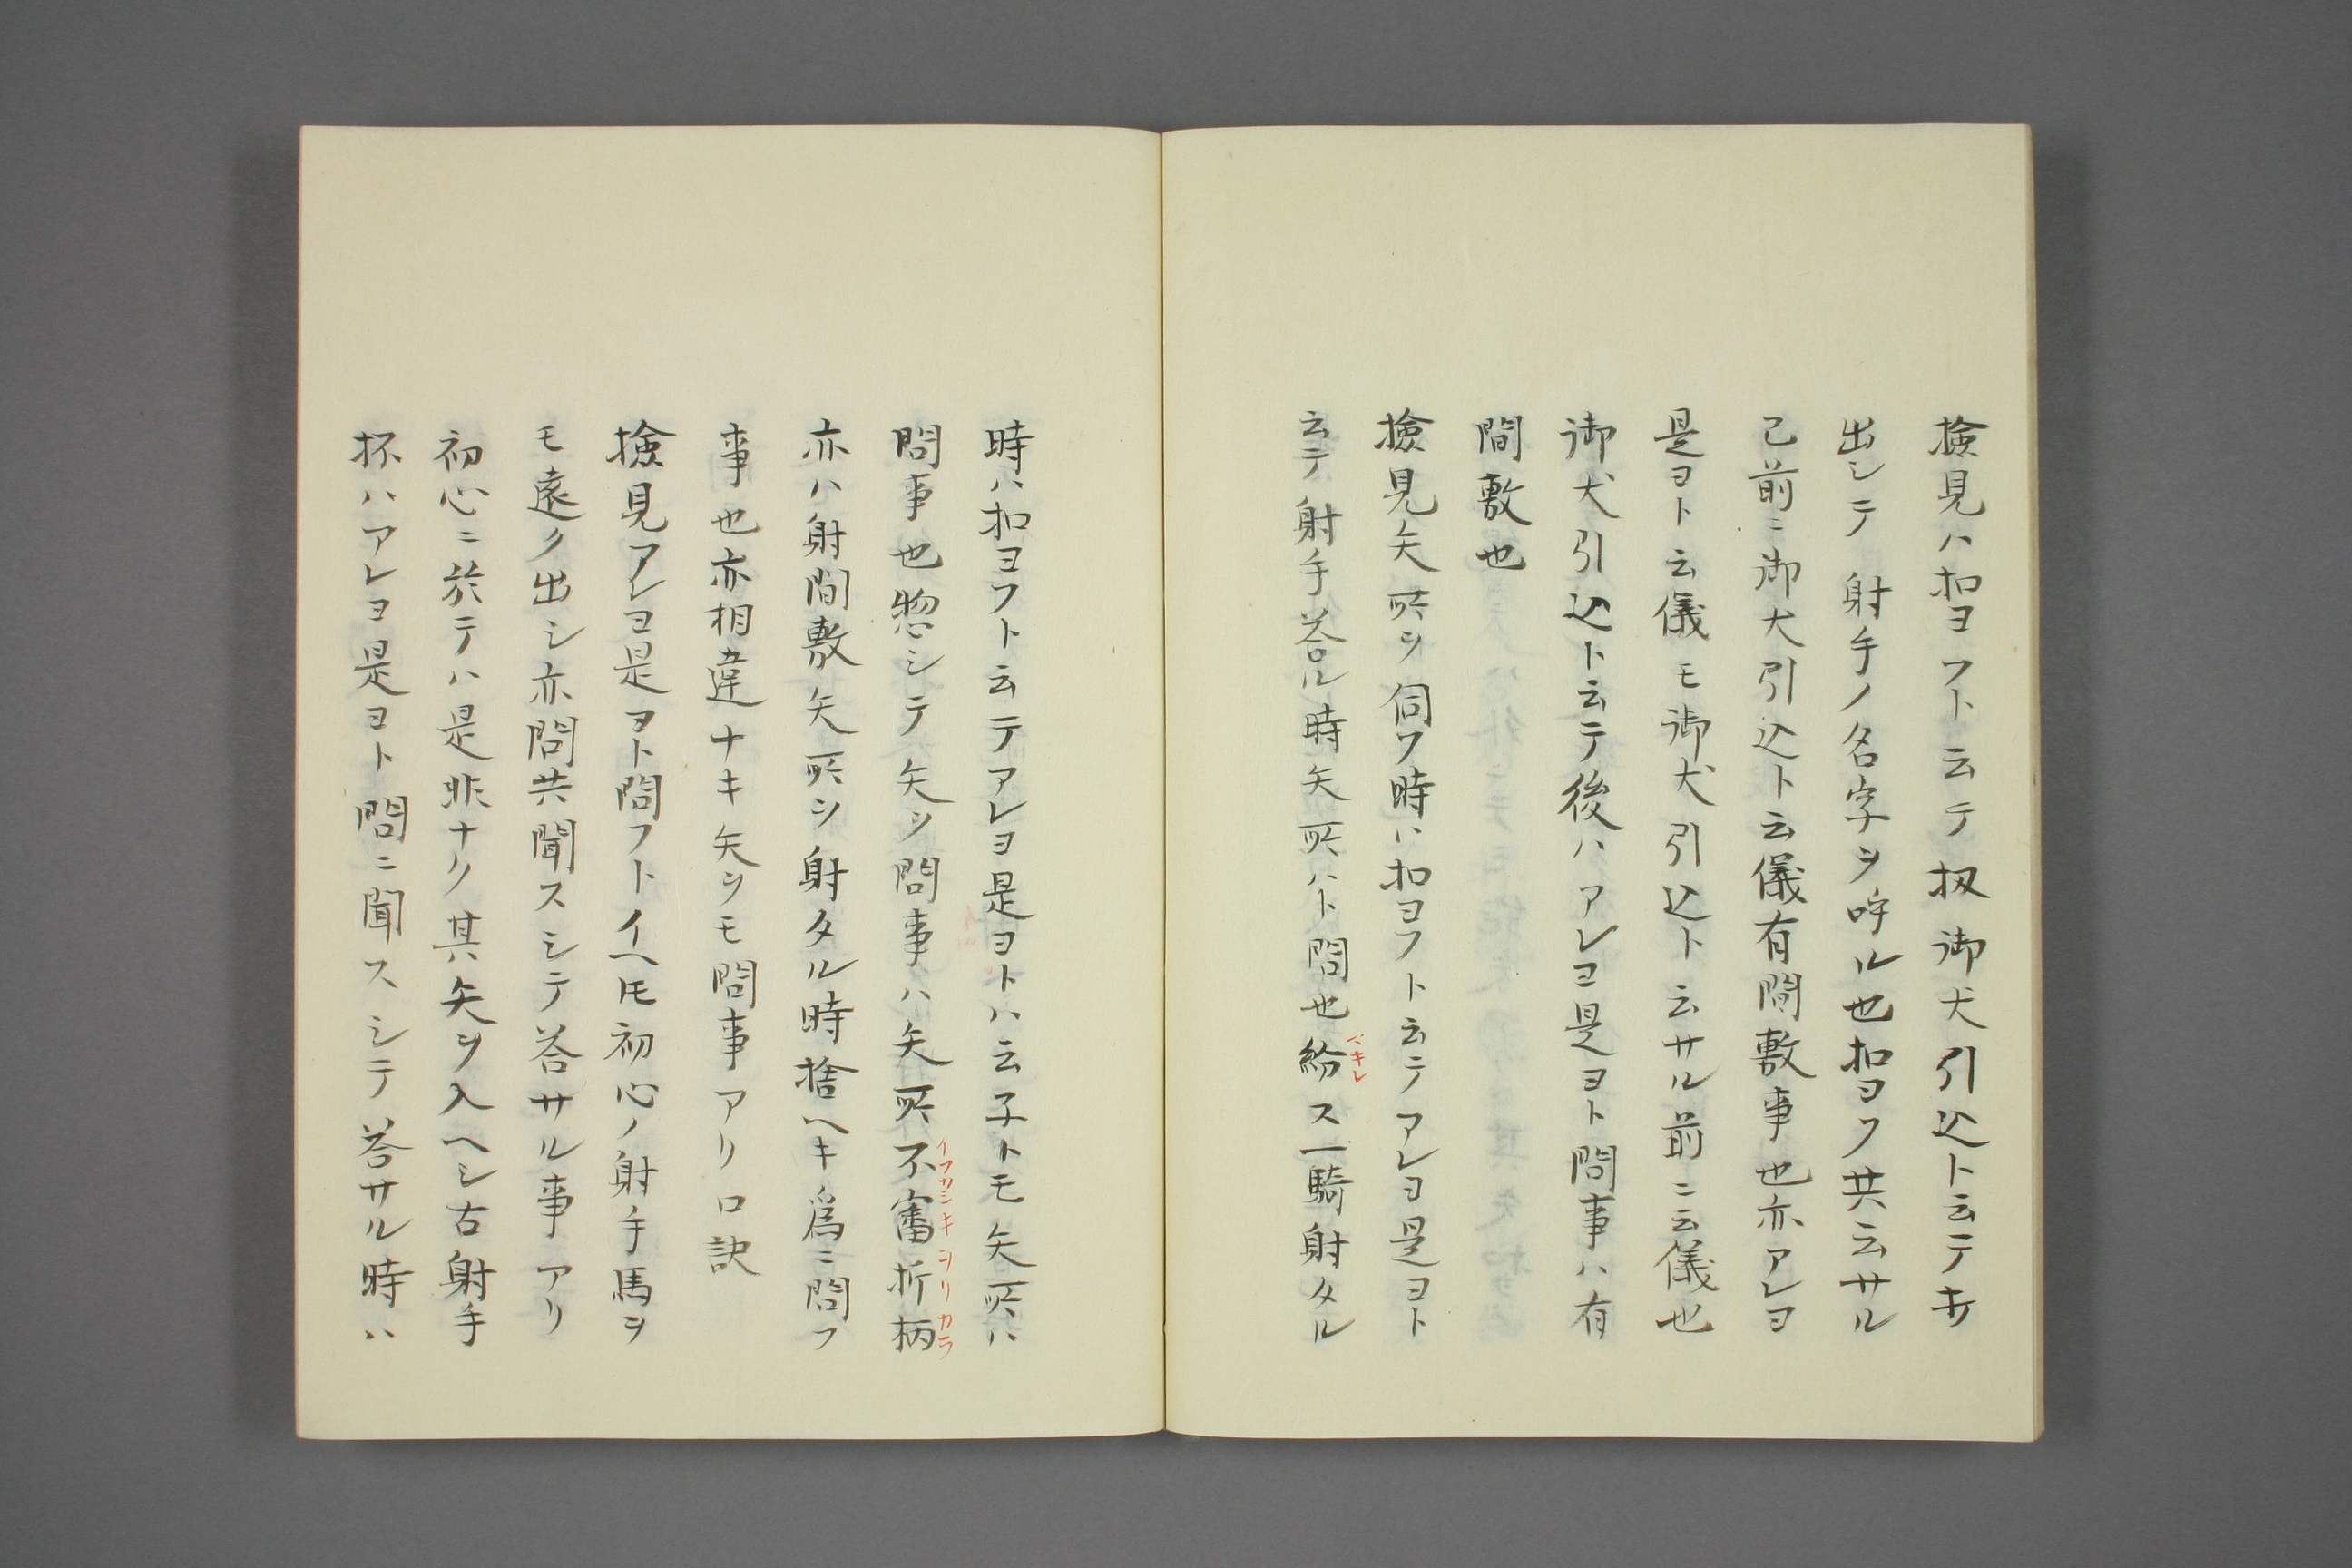 撿見ハ扣ヨフト云テ扨御犬引込ト云テキ
出シテ射手ノ名字ヲ呼ル也扣ヨフ共云サル
已前ニ御犬引込ト云儀有間敷事也亦アレヨ
是ヨト云儀モ御犬引込ト云サル前ニ云儀也
御犬引込ト云テ後ハアレヨ是ヨト問事ハ有
間敷也
撿見矢所ヲ伺フ時ハ扣ヨフト云テアレヨ是ヨト
云テ射手答ル時矢所ハト問也紛ス一騎射タル
時ハ扣ヨフト云テアレヨ是ヨトハ云子トモ矢所ハ
問事也惣シテ矢ヲ問事ハ矢所不審折柄
イフカシキヲリカラ
亦ハ射間敷矢所ヲ射タル時捨ヘキ為ニ問フ
事也亦相違ナキ矢ヲモ問事アリ口訣
撿見アレヨ是ヨト問フトイヘ𪜈初心ノ射手馬ヲ
モ遠ク出シ亦問共聞スシテ答サル事アリ
初心ニ於テハ是非ナク其ハ矢ヲ入ヘシ古射手
抔ハアレヨ是ヨト問ニ聞スシテ答サル時ハ